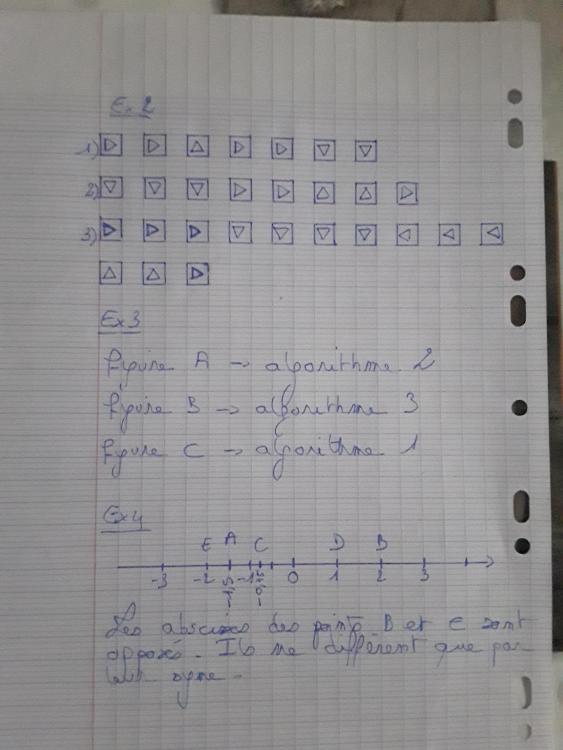 Ex 2
1) ▷ ▷ △ ▷ ▷ ▽ ▽
2) ▽ ▽ ▽ ▷ ▷ △ △ ▷
3) ▷ ▷ ▷ ▽ ▽ ▽ ▽ ◁ ◁ ◁
△ △ ▷
Ex 3
figure A -> algorithme 2
figure B -> algorithme 3
figure C -> algorithme 1
Ex 4
E A C D B
-3 -2 -1 0 1 2 3
Les abscisses des points B et E sont
opposés. Ils ne diffèrent que par
leur signe.